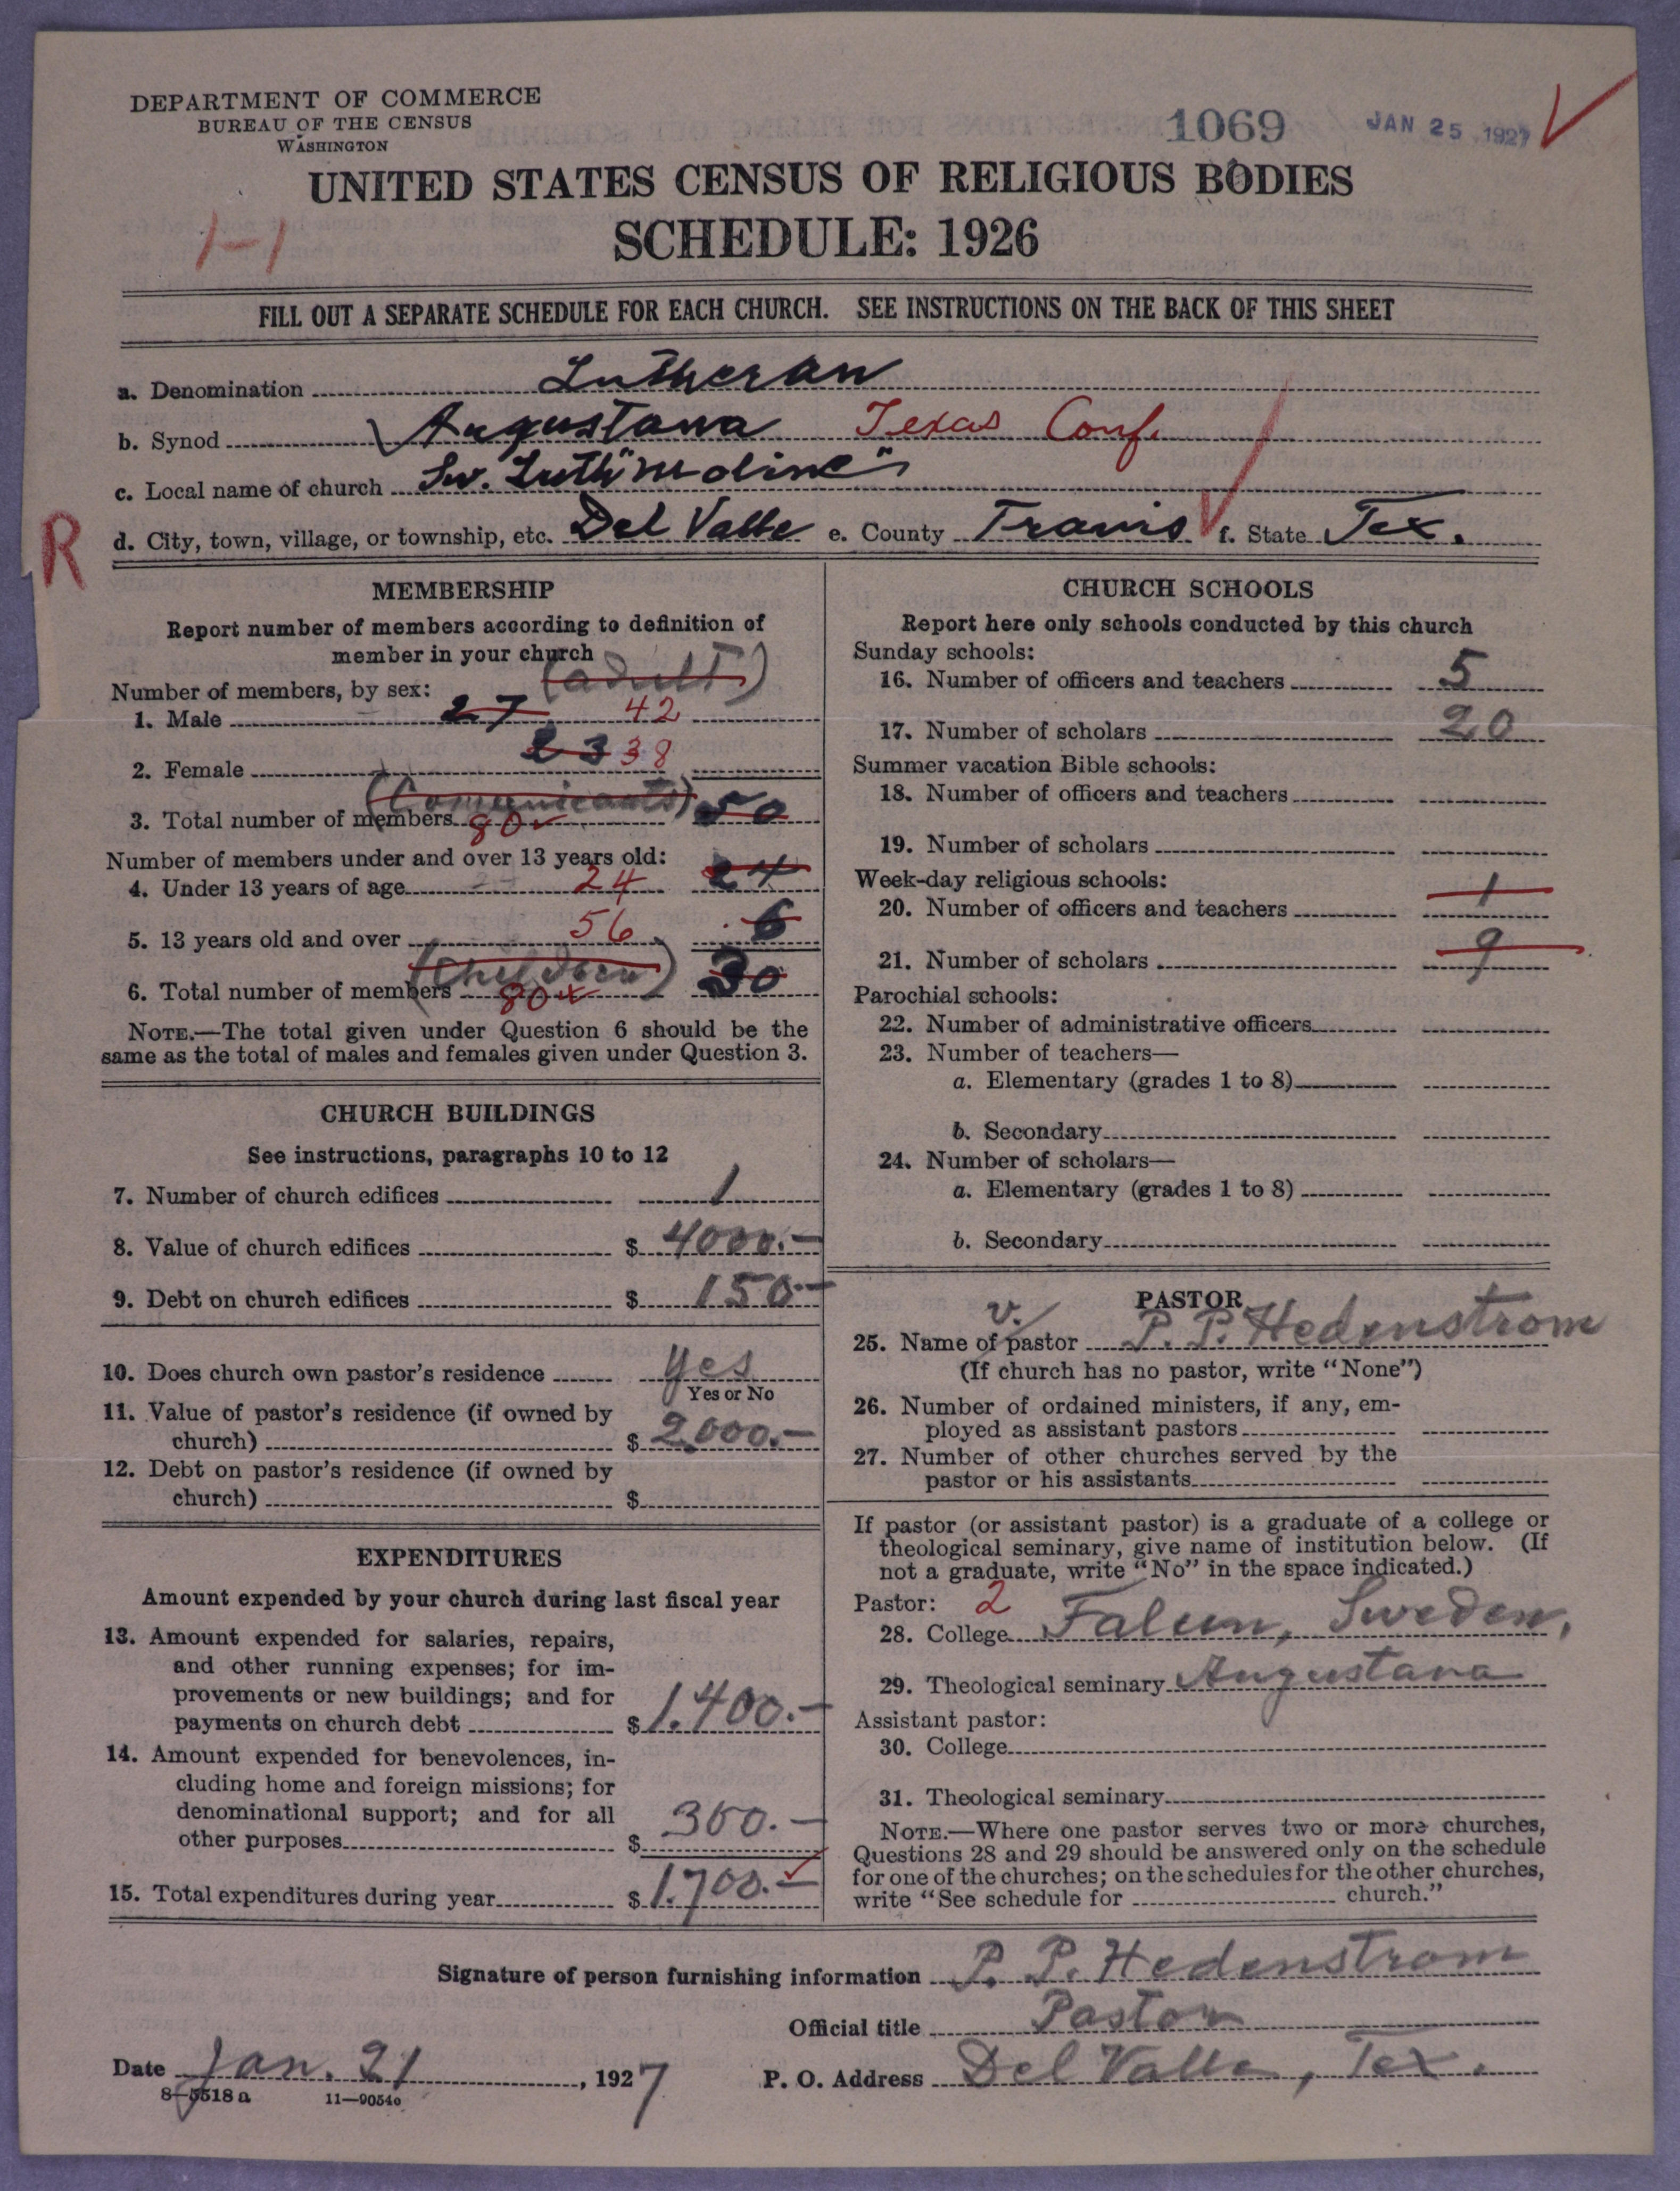 DEPARTMENT OF COMMERCE
BUREAU OF THE CENSUS
WASHINGTON
1069
JAN 25 1927
UNITED STATES CENSUS OF RELIGIOUS BODIES
1-1
SCHEDULE: 1926
FILL OUT A SEPARATE SCHEDULE FOR EACH CHURCH. SEE INSTRUCTIONS ON THE BACK OF THIS SHEET
a. Denomination Lutheran
b. Synod Augustana Texas Conf.
c. Local name of church Sw. Luth "Moline"
R
d. City, town, village, or township, etc. Del Valle e. County Travis f. State Tex.
MEMBERSHIP
Report number of members according to definition of
member in your church
(adult)
Number of members, by sex:
1. Male 27 42
2. Female 23 38
(Comunicants)
3. Total number of members 80 50
Number of members under and over 13 years old:
4. Under 13 years of age 24 24
5. 13 years old and over 56 6
(Children)
6. Total number of members 80 30
NOTE.—The total given under Question 6 should be the
same as the total of males and females given under Question 3.
CHURCH BUILDINGS
See instructions, paragraphs 10 to 12
7. Number of church edifices 1
8. Value of church edifices $ 4000.-
9. Debt on church edifices $ 150.-
10. Does church own pastor's residence yes
Yes or No
11. Value of pastor's residence (if owned by
church) $ 2,000.-
12. Debt on pastor's residence (if owned by
church) $
EXPENDITURES
Amount expended by your church during last fiscal year
13. Amount expended for salaries, repairs,
and other running expenses; for im-
provements or new buildings; and for
payments on church debt $ 1.400.-
14. Amount expended for benevolences, in-
cluding home and foreign missions; for
denominational support; and for all
other purposes $ 300.-
15. Total expenditures during year $ 1.700.-
CHURCH SCHOOLS
Report here only schools conducted by this church
Sunday schools:
16. Number of officers and teachers 5
17. Number of scholars 20
Summer vacation Bible schools:
18. Number of officers and teachers
19. Number of scholars
Week-day religious schools:
20. Number of officers and teachers 1
21. Number of scholars 9
Parochial schools:
22. Number of administrative officers
23. Number of teachers—
a. Elementary (grades 1 to 8)
b. Secondary
24. Number of scholars—
a. Elementary (grades 1 to 8)
b. Secondary
PASTOR
v.
25. Name of pastor P. P. Hedenstrom
(If church has no pastor, write "None")
26. Number of ordained ministers, if any, em-
ployed as assistant pastors
27. Number of other churches served by the
pastor or his assistants
If pastor (or assistant pastor) is a graduate of a college or
theological seminary, give name of institution below. (If
not a graduate, write "No" in the space indicated.)
Pastor: 2
28. College Falun, Sweden,
29. Theological seminary Augustana
Assistant pastor:
30. College
31. Theological seminary
NOTE.—Where one pastor serves two or more churches,
Questions 28 and 29 should be answered only on the schedule
for one of the churches; on the schedules for the other churches,
write "See schedule for church."
Signature of person furnishing information P. P. Hedenstrom
Official title Pastor
Date Jan. 21, 1927
P. O. Address Del Valle, Tex.
8-5518 a 11-9054c